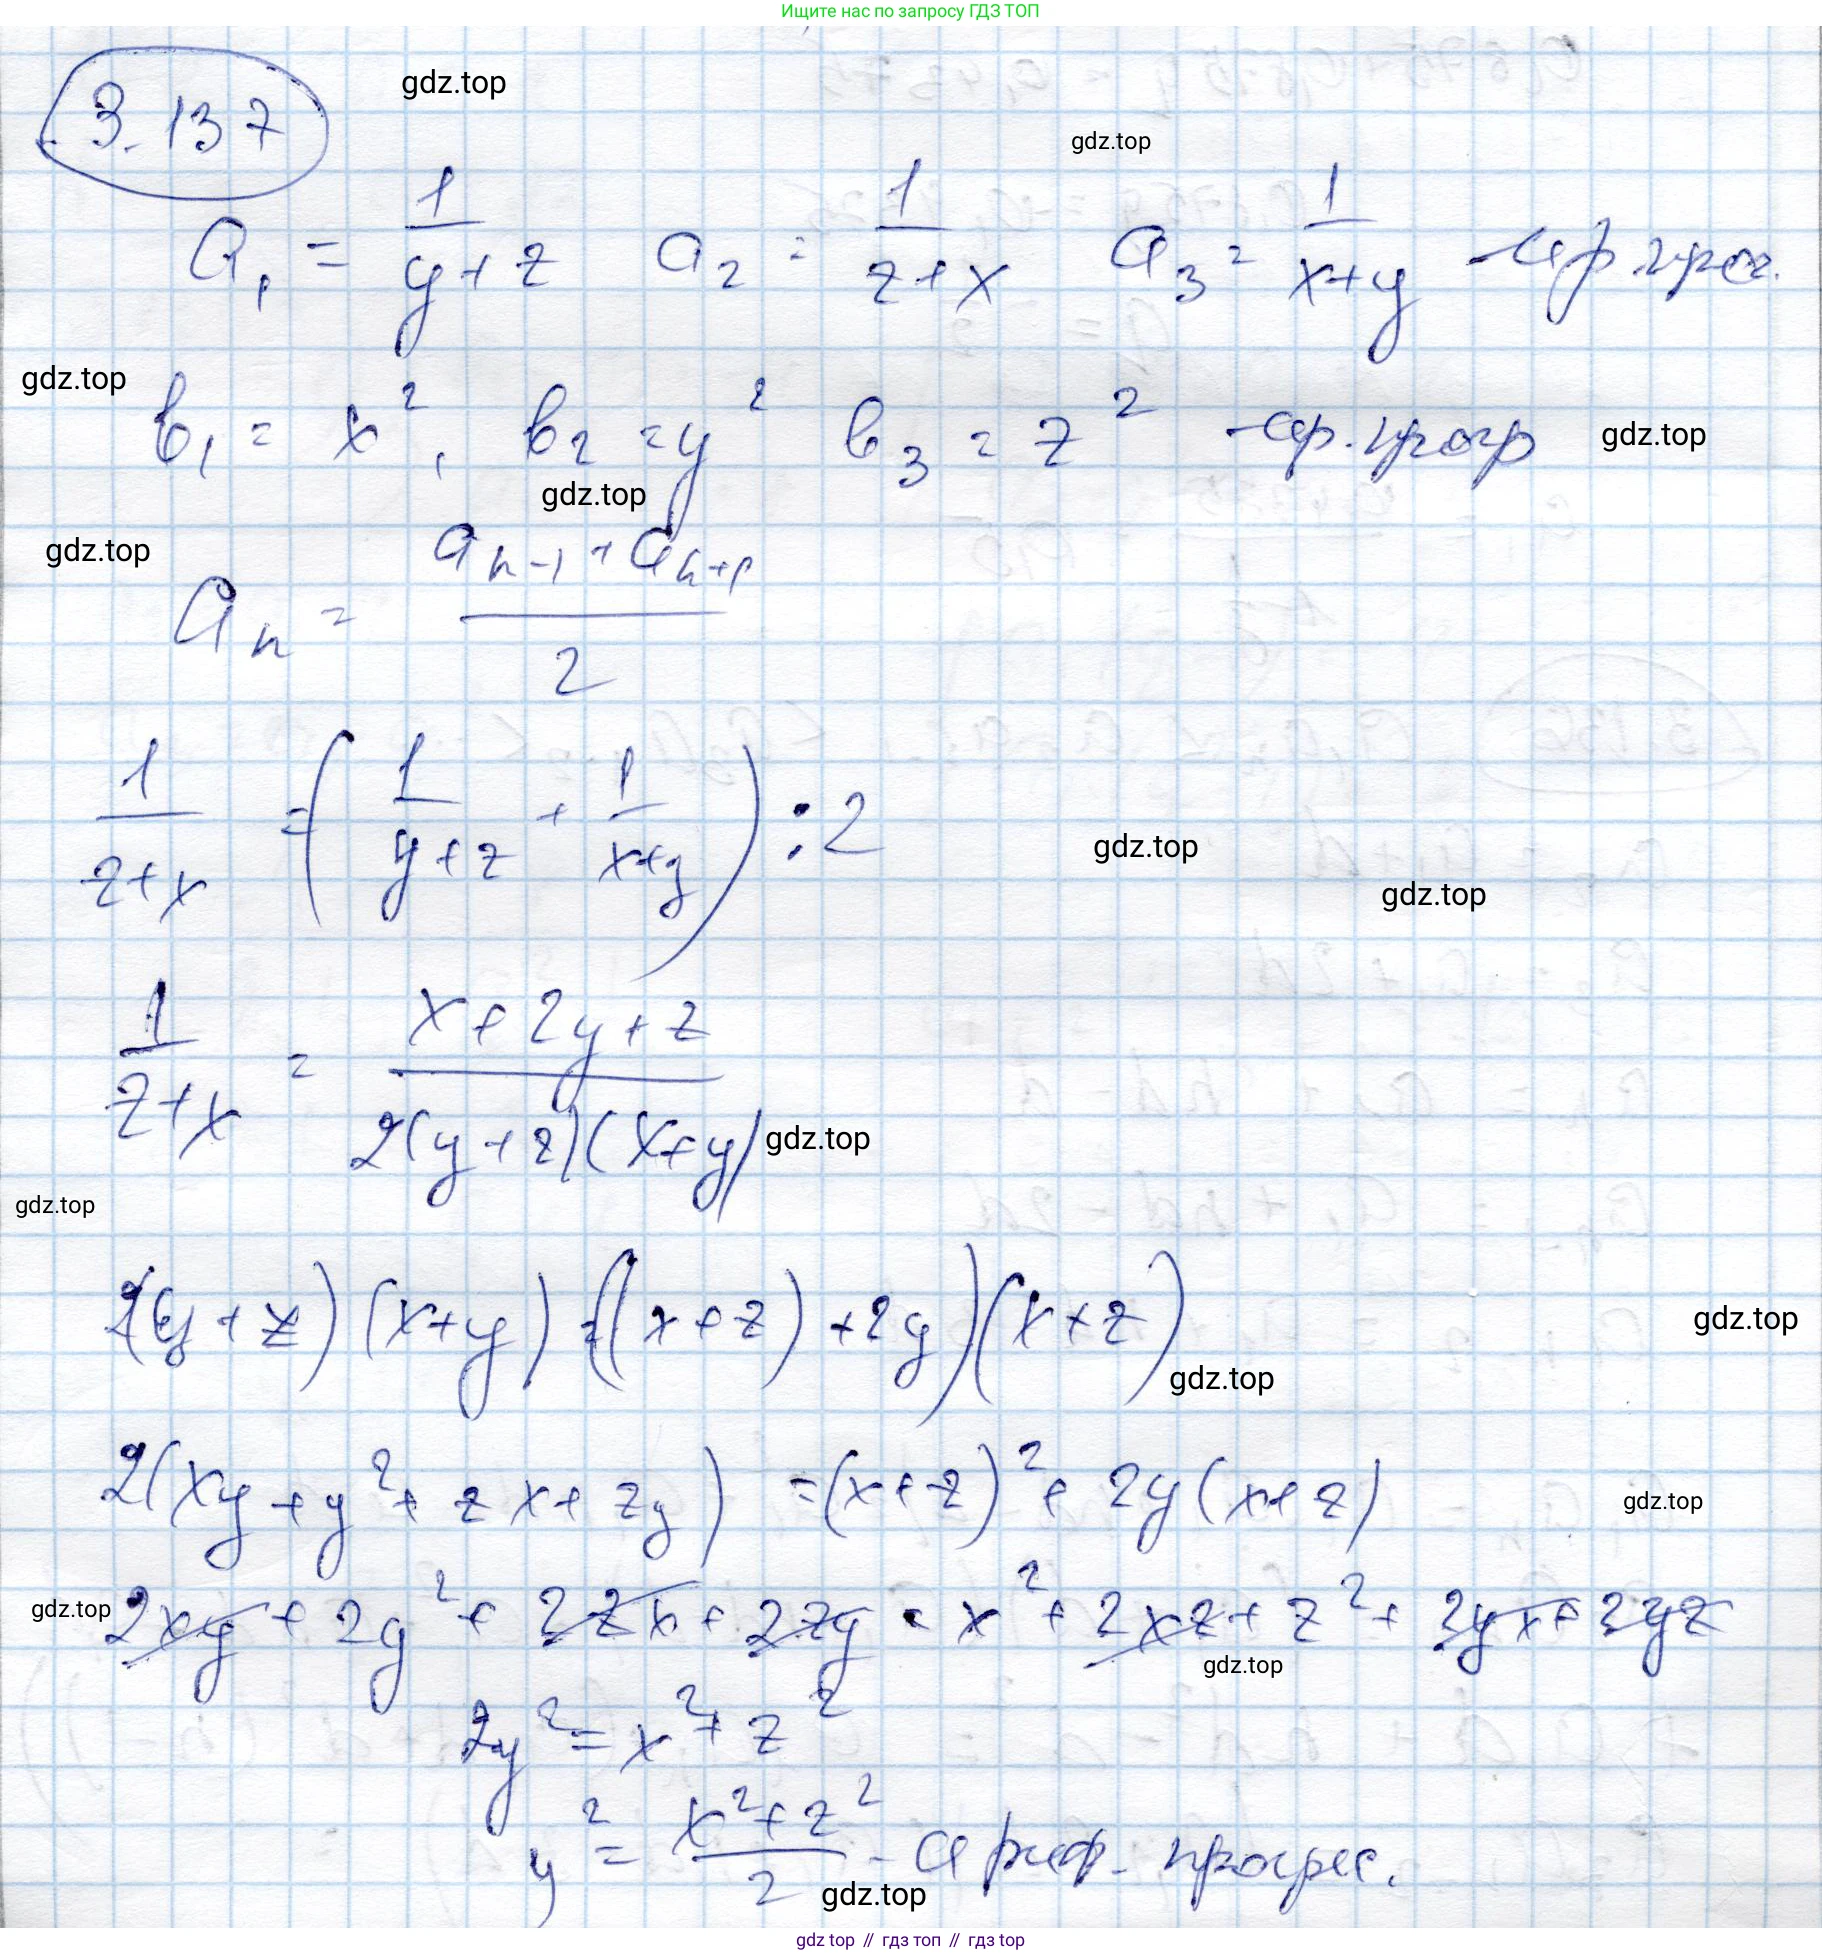 Ищите нас по запросу ГДЗ ТОП
3.137
gdz.top
gdz.top
a₁ = 1/(y+z) a₂ = 1/(z+x) a₃ = 1/(x+y) - ар. прог.
gdz.top
b₁ = x², b₂ = y² b₃ = z² - ар. прогр
gdz.top
gdz.top
gdz.top
aₙ = (aₙ₋₁ + aₙ₊₁)/2
1/(z+x) = (1/(y+z) + 1/(x+y)) : 2
gdz.top
gdz.top
1/(z+x) = (x+2y+z)/(2(y+z)(x+y)
gdz.top
gdz.top
2(y+z)(x+y) = ((x+z)+2y)(x+z)
gdz.top
gdz.top
2(xy+y²+zx+zy) = (x+z)²+2y(x+z)
gdz.top
gdz.top
2xy+2y²+2zx+2zy = x²+2xz+z²+2yx+2yz
gdz.top
2y² = x²+z²
y² = (x²+z²)/2 - ариф. прогрес.
gdz.top
gdz top // гдз топ // гдз top